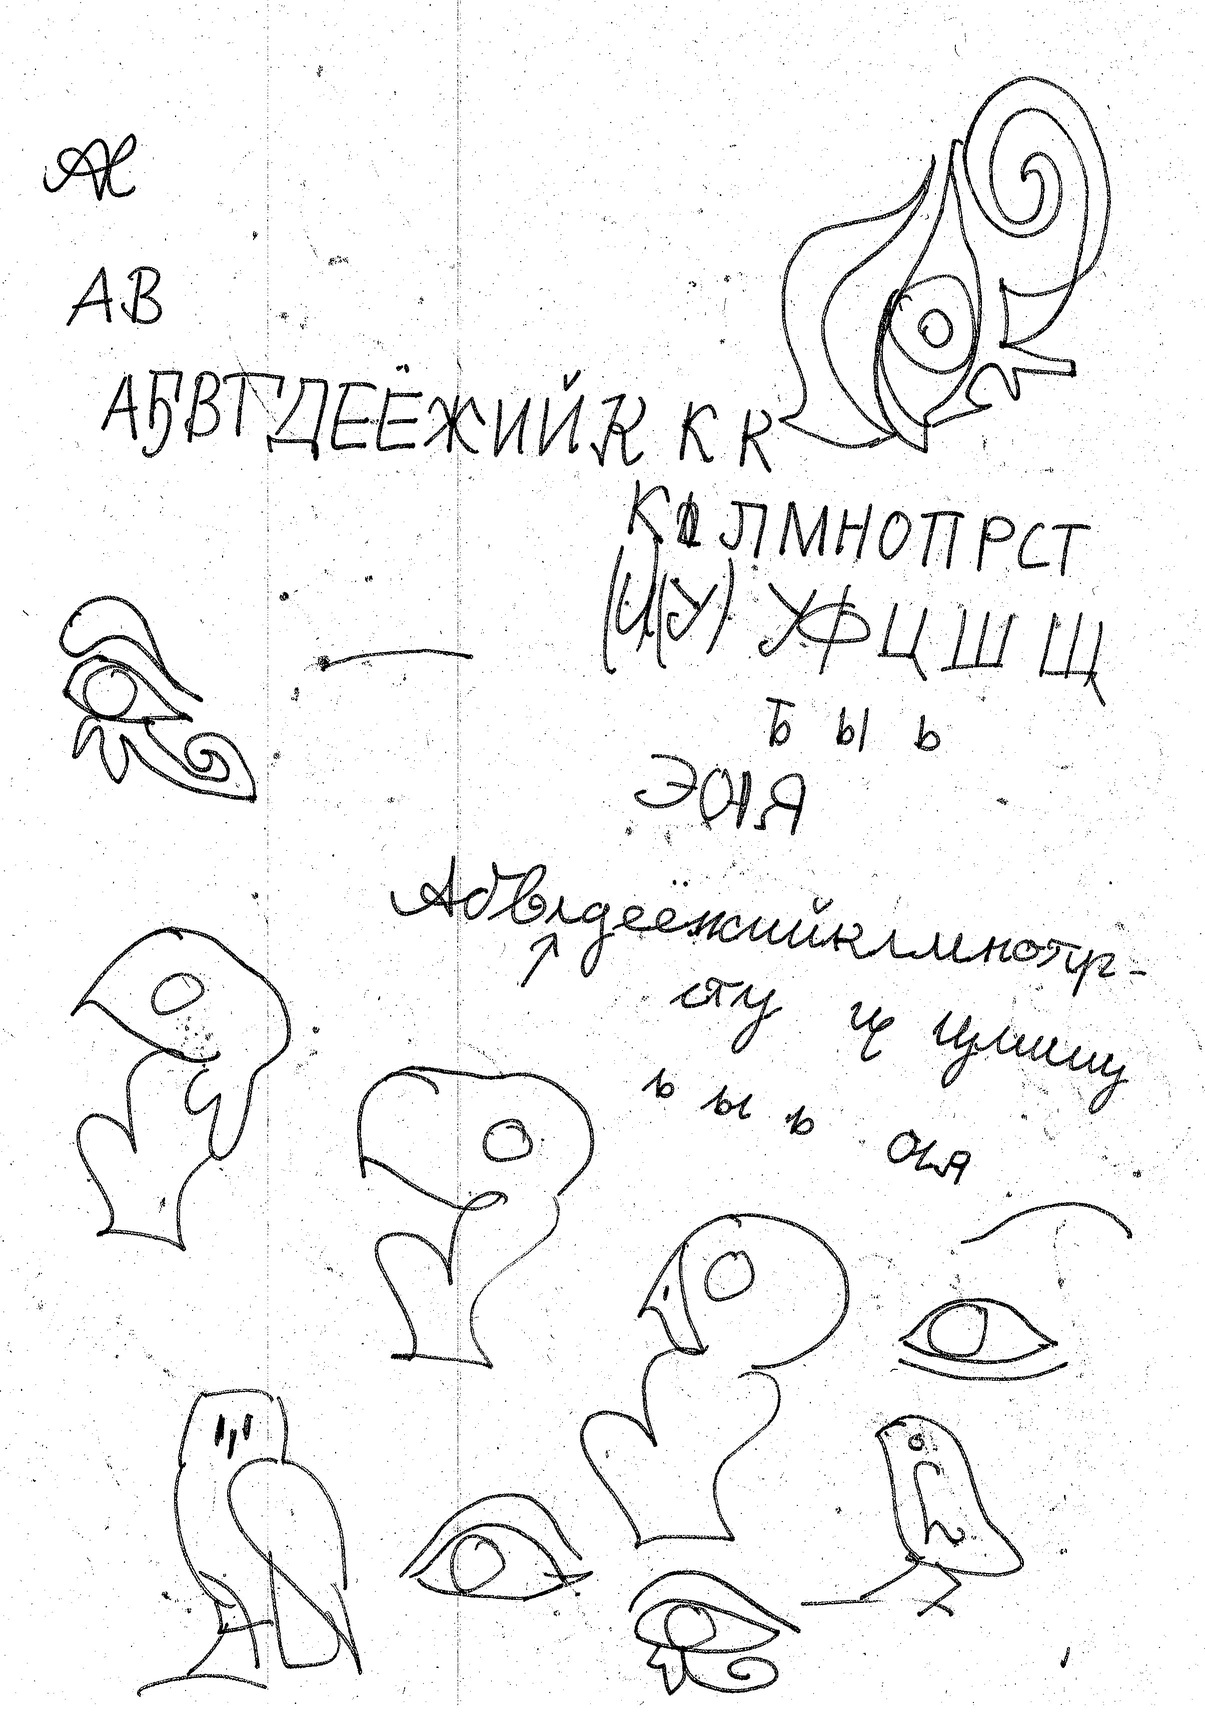 А
АВ
АБВГДЕЁЖИЙК К К
К ЛМНОПРСТ
(Ц(У) УФ Ц Ш Щ
Ъ Ы Ь
ЭЮЯ
Абвгдеёжийклмнопр-
сту ц цчшщ
ъ ы ь юя